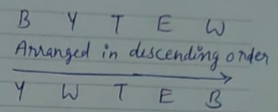 B Y T E W
Arranged in descending order
Y W T E B